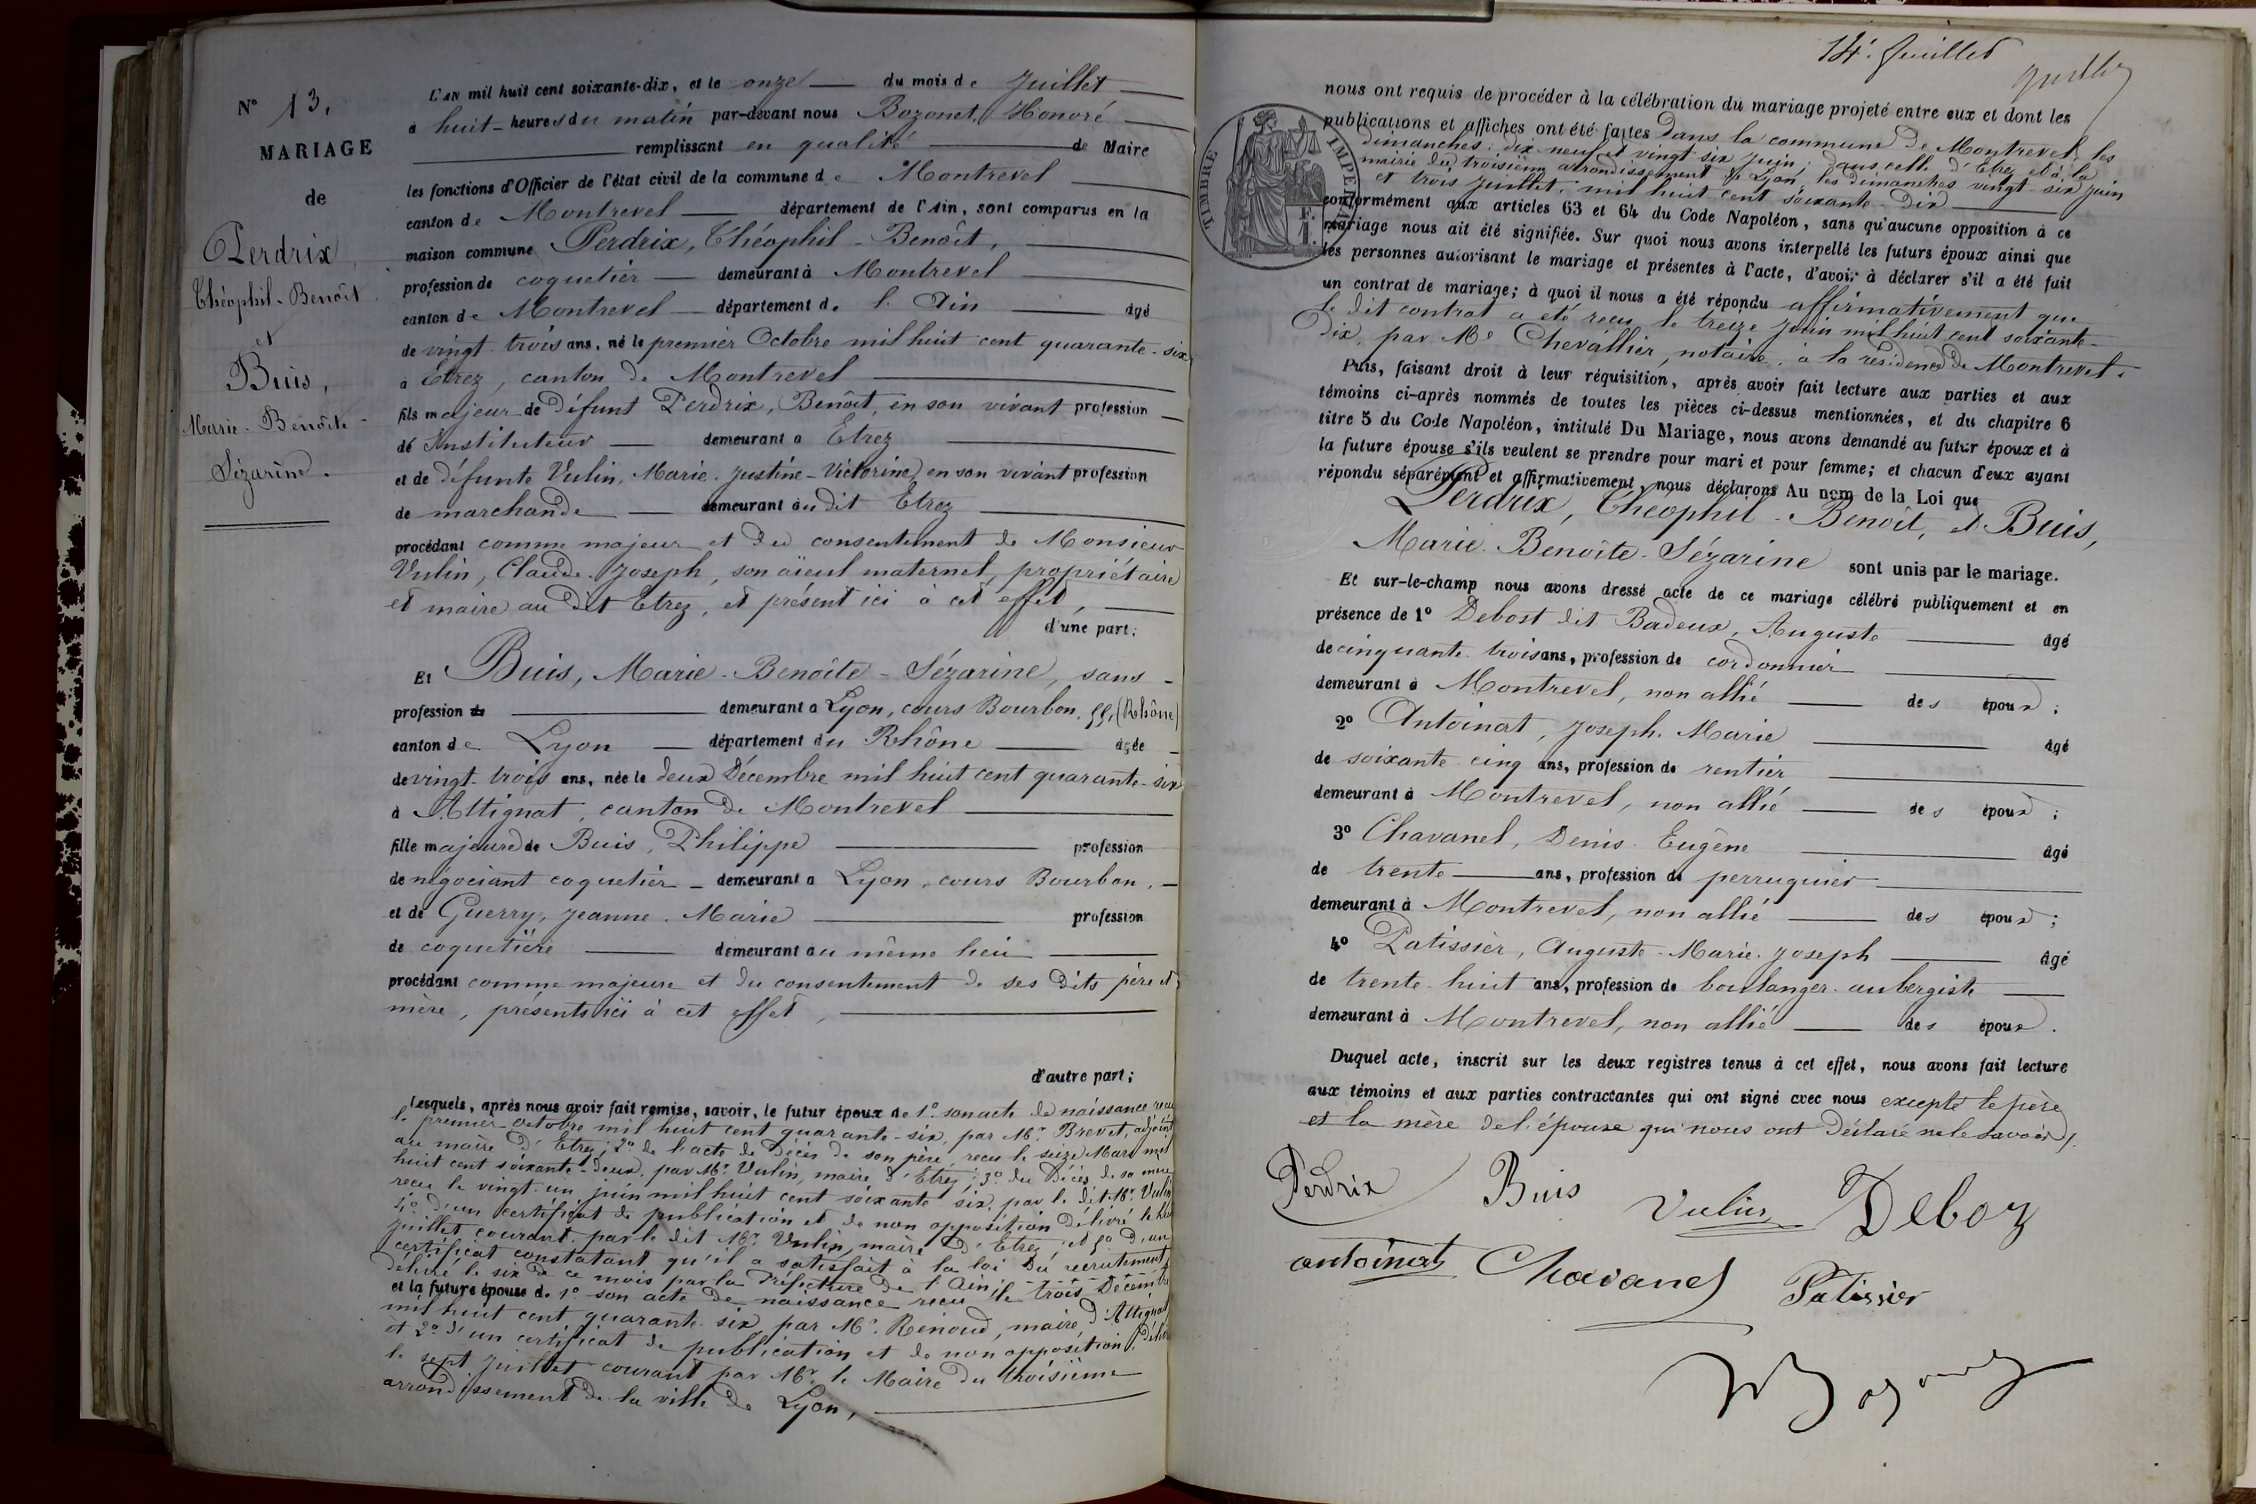 N° 13.
MARIAGE
de
Perdrix
Théophil-Benoît
et
Buis,
Marie-Benoîte-
Sézarine.
L'AN mil huit cent soixante-dix, et le onze du mois de Juillet
à huit heures du matin par-devant nous Bozonet, Honoré
remplissant en qualité de Maire
les fonctions d'Officier de l'état civil de la commune de Montrevel
canton de Montrevel département de l'Ain, sont comparus en la
maison commune Perdrix, Théophil-Benoît,
profession de coquetier demeurant à Montrevel
canton de Montrevel département de l'Ain âgé
de vingt-trois ans, né le premier Octobre mil huit cent quarante-six
à Etrez, canton de Montrevel
fils majeur de défunt Perdrix, Benoît, en son vivant profession
de Instituteur demeurant à Etrez
et de défunte Vulin, Marie-Justine-Victorine, en son vivant profession
de marchande demeurant au dit Etrez
procédant comme majeur et du consentement de Monsieur
Vulin, Claude-Joseph, son aïeul maternel, propriétaire
et maire au dit Etrez, et présent ici à cet effet,
d'une part;
Et Buis, Marie-Benoîte-Sézarine, sans
profession de demeurant à Lyon, cours Bourbon, 55, (Rhône)
canton de Lyon département du Rhône âgée
de vingt-trois ans, née le deux Décembre mil huit cent quarante-six
à Attignat, canton de Montrevel
fille majeure de Buis, Philippe profession
de négociant coquetier demeurant à Lyon, cours Bourbon,
et de Guerry, Jeanne-Marie profession
de coquetière demeurant au même lieu
procédant comme majeure et du consentement de ses dits père et
mère, présents ici à cet effet,
d'autre part;
Lesquels, après nous avoir fait remise, savoir, le futur époux de 1° son acte de naissance reçu
le premier Octobre mil huit cent quarante-six, par Mr. Brevet, adjoint
au maire d'Etrez; 2° de l'acte de décès de son père, reçu le seize Mars mil
huit cent soixante-deux, par Mr. Vulin, maire d'Etrez; 3° du décès de sa mère
reçu le vingt-un juin mil huit cent soixante-six, par le dit Mr. Vulin
4° d'un certificat de publication et de non opposition délivré le
Juillet courant, par le dit Mr. Vulin, maire d'Etrez; et 5° d'un
certificat constatant qu'il a satisfait à la loi du recrutement
délivré le six de ce mois par la Préfecture de l'Ain;
et la future épouse de 1° son acte de naissance reçu le trois Décembre
mil huit cent quarante-six par Mr. Renoud, maire d'Attignat
et 2° d'un certificat de publication et de non opposition,
le sept Juillet courant par Mr. le Maire du troisième
arrondissement de la ville de Lyon,
14e. feuillet
TIMBRE IMPERIAL
nous ont requis de procéder à la célébration du mariage projeté entre eux et dont les
publications et affiches ont été faites dans la commune de Montrevel, les
dimanches: dix-neuf et vingt-six juin; dans celle d'Etrez et à la
mairie du troisième arrondissement de Lyon, les dimanches vingt-six juin
et trois Juillet, mil huit cent soixante-dix
conformément aux articles 63 et 64 du Code Napoléon, sans qu'aucune opposition à ce
mariage nous ait été signifiée. Sur quoi nous avons interpellé les futurs époux ainsi que
les personnes autorisant le mariage et présentes à l'acte, d'avoir à déclarer s'il a été fait
un contrat de mariage; à quoi il nous a été répondu affirmativement que
le dit contrat a été reçu le treize juin mil huit cent soixante-
dix, par Me Chevallier, notaire, à la résidence de Montrevel.
Puis, faisant droit à leur réquisition, après avoir fait lecture aux parties et aux
témoins ci-après nommés de toutes les pièces ci-dessus mentionnées, et du chapitre 6
titre 5 du Code Napoléon, intitulé Du Mariage, nous avons demandé au futur époux et à
la future épouse s'ils veulent se prendre pour mari et pour femme; et chacun d'eux ayant
répondu séparément et affirmativement, nous déclarons Au nom de la Loi que
Perdrix, Théophil-Benoît, et Buis,
Marie-Benoîte-Sézarine sont unis par le mariage.
Et sur-le-champ nous avons dressé acte de ce mariage célébré publiquement et en
présence de 1° Debost dit Badeux, Auguste âgé
de cinquante-trois ans, profession de cordonnier
demeurant à Montrevel, non allié des époux;
2° Antoinat, Joseph-Marie âgé
de soixante-cinq ans, profession de rentier
demeurant à Montrevel, non allié des époux;
3° Chavanel, Denis-Eugène âgé
de trente ans, profession de perruquier
demeurant à Montrevel, non allié des époux;
4° Patissier, Auguste-Marie-Joseph âgé
de trente-huit ans, profession de boulanger-aubergiste
demeurant à Montrevel, non allié des époux.
Duquel acte, inscrit sur les deux registres tenus à cet effet, nous avons fait lecture
aux témoins et aux parties contractantes qui ont signé avec nous excepté le père
et la mère de l'épouse qui nous ont déclaré ne le savoir.
Perdrix Buis Vulin Deboz
antoinat Chavanel Patissier